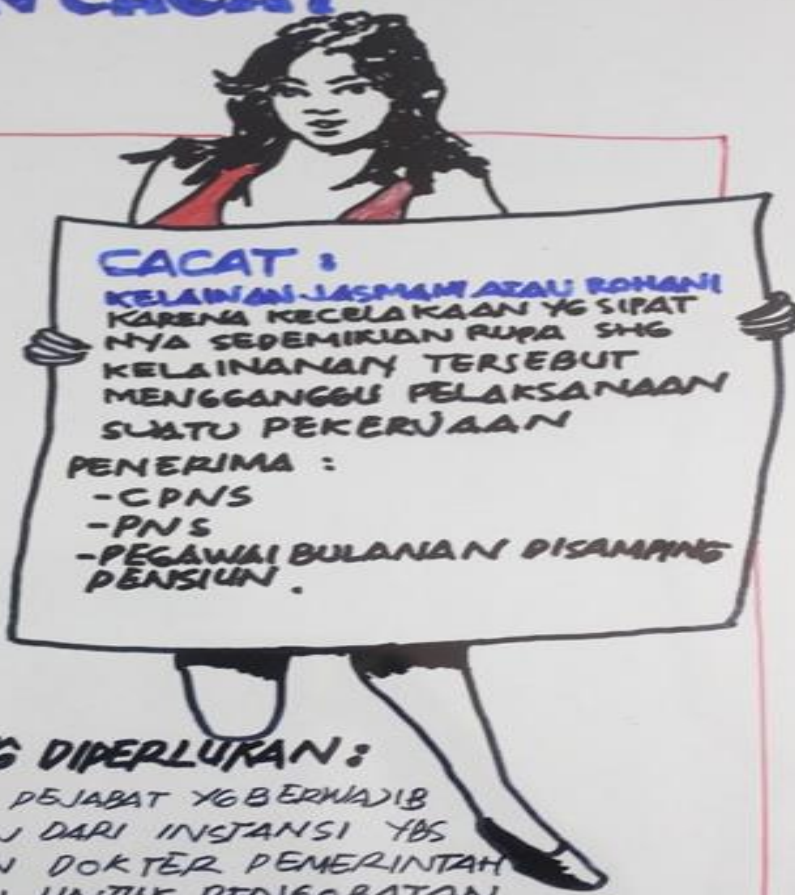 CACAT
CACAT :
KELAINAN JASMANI ATAU ROHANI
KARENA KECELAKAAN YG SIPAT
NYA SEDEMIKIAN RUPA SHG
KELAINANAN TERSEBUT
MENGGANGGU PELAKSANAAN
SUATU PEKERJAAN
PENERIMA :
-CPNS
-PNS
-PEGAWAI BULANAN DISAMPING
PENSIUN .
DIPERLUKAN :
PEJABAT YG BERWAJIB
DARI INSTANSI YBS
DOKTER PEMERINTAH
UNTUK PENGOBATAN